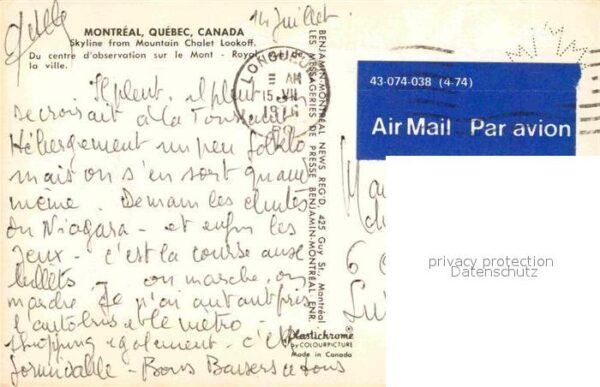 14 Juillet.
MONTRÉAL, QUÉBEC, CANADA
Skyline from Mountain Chalet Lookoff.
Du centre d'observation sur le Mont - Royal
la ville.
Il pleut, il pleut, on
se croirait à la
Hébergement un peu folklo
mais on s'en sort quand
même. Demain les chutes
du Niagara - et enfin les
Jeux - c'est la course aux
billets. on marche, on
marche. Je n'ai autant pris
l'autobus et le métro -
shopping également - c'est
formidable - Bons Baisers à tous
LONGUEUIL
AM
15 VII
BENJAMIN-MONTRÉAL NEWS REG'D, 425 Guy St., Montréal
LES MESSAGERIES DE PRESSE BENJAMIN-MONTRÉAL ENR.
Plastichrome
by COLOURPICTURE
Made in Canada
43-074-038 (4-74)
Air Mail Par avion
6
privacy protection
Datenschutz